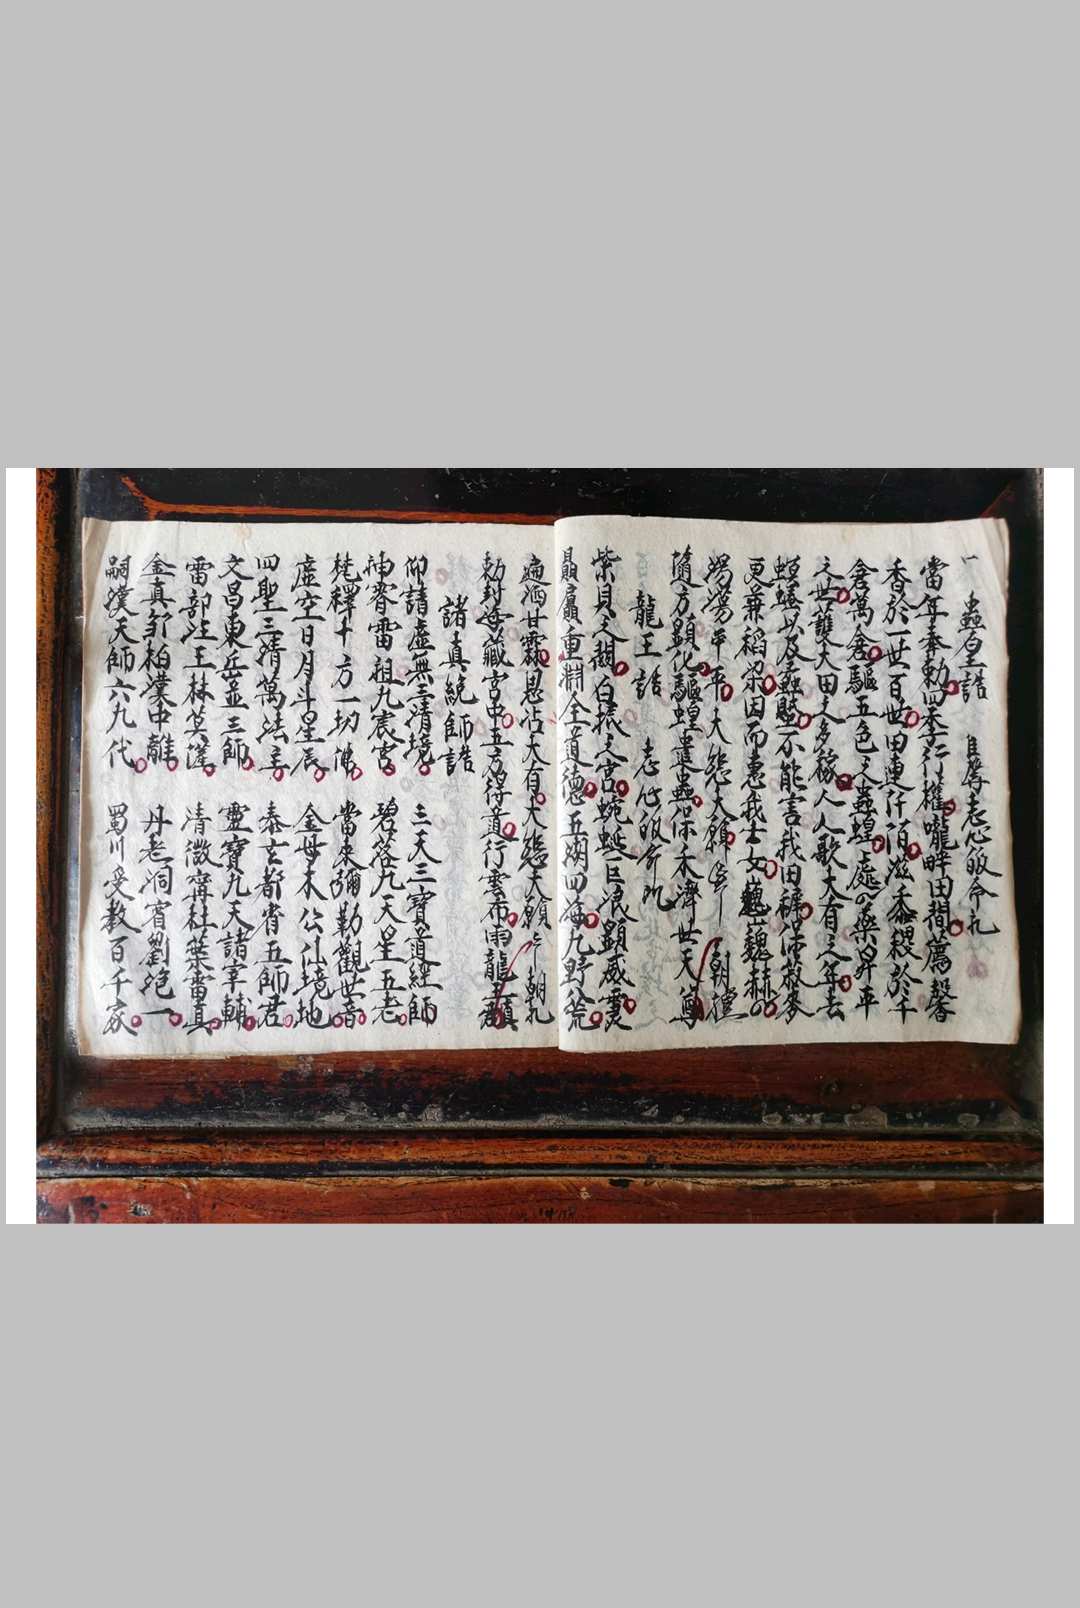 一 蟲皇誥 志心皈命礼
當年奉勅四季行權隴畔田間薦馨
香於一世百世田連仟陌滋禾稷於千
倉萬倉驅五色之蟲蝗處々樂昇平
之世護大田之多稼人人歌大有之年去
螟蟊以及蟊賊不能害我田穉
更兼稻梁因而惠我士女巍巍赫々
湯湯平平大慈大願 朝禮
隨方顯化驅蝗遣蟲保禾濟世天尊
龍王誥 志心皈命礼
紫貝之闕白振之宮蜿蜒巨浪顯威靈
贔屭重淵全道德五湖四海九野八荒
遍洒甘霖恩沾大有大慈大願 朝礼
勅封海藏宮中五方得道行雲布雨龍王
諸真總師誥
仰請虛無三清境 三天三寶道經師
神霄雷祖九宸宮 碧落九天星五老
梵釋十方一切佛 當來彌勒觀世音
虛空日月斗星辰 金母木公仙境地
四聖三清萬法主 泰玄都省五師君
文昌東岳孟三師 靈寶九天諸宰輔
雷部汪王林莫漢 清微寗杜葉雷真
金真邹柏漢中離 丹老洞賓劉
嗣漢天師六九代 蜀川受教百千